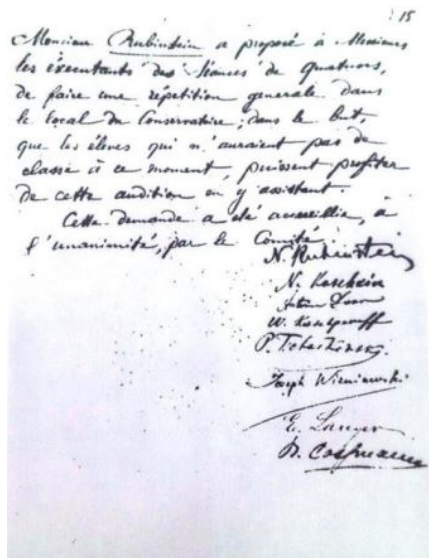 15
Monsieur Rubinstein a proposé à Messieurs
les éxécutants des séances de quatuors,
de faire une répétition generale dans
le local du Conservatoire; dans le but,
que les élèves qui n'auraient pas de
classe à ce moment, puissent profiter
de cette audition en y assistant.
Cette demande a été accueillie, à
l'unanimité, par le Comité.
N. Rubinstein
N. Kaschkin
W. Kaschperoff
P. Tschaikovsky.
Joseph Wieniawski
E. Langer
B. Cossmann